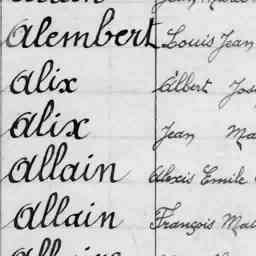 Alembert Louis Jean
Alix Albert
Alix Jean
Allain Alexis Emile
Allain François